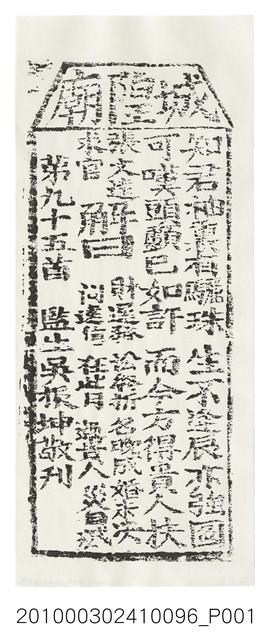 城隍廟
知君袖裏有驪珠 生不逢辰亦強圖
可嘆頭顱已如許 而今方得貴人扶
張文遠求官
解曰
財運終 訟解析 名喚成 婚未決
問遠信 在此日 遇貴人 災自滅
第九十五首 監生吳振坤敬刊
201000302410096_P001